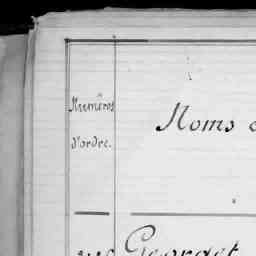 Numéros
d'ordre.
Noms
Georget